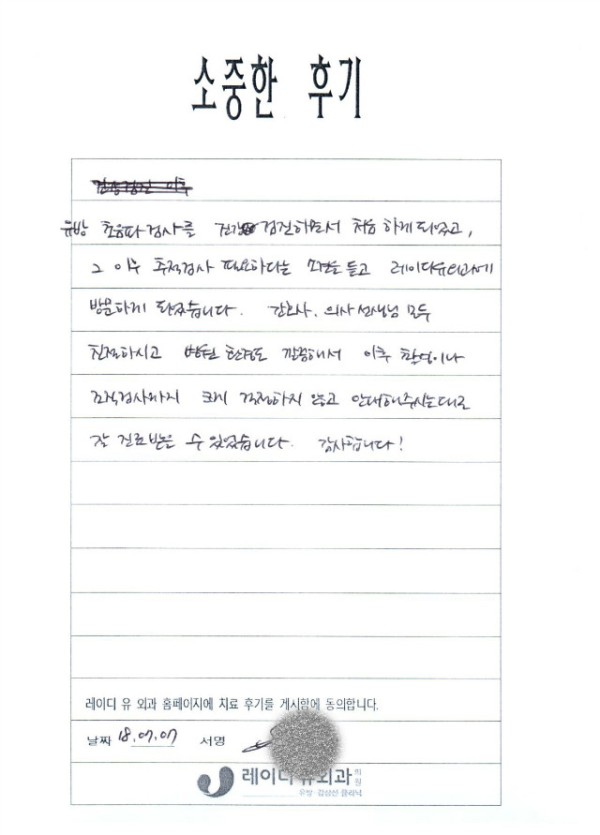 소중한 후기
건강검진 이후
유방 초음파검사를 건강검진하면서 처음 하게되었고,
그 이후 추적검사 필요하다는 소견을 듣고 레이디유외과에
방문하게 되었습니다. 간호사, 의사선생님 모두
친절하시고 병원 환경도 깔끔해서 이후 촬영이나
조직검사까지 크게 걱정하지 않고 안내해주시는대로
잘 진료받을 수 있었습니다. 감사합니다!
레이디 유 외과 홈페이지에 치료 후기를 게시함에 동의합니다.
날짜 18.07.07 서명
레이디 유외과 의원
유방·갑상선 클리닉